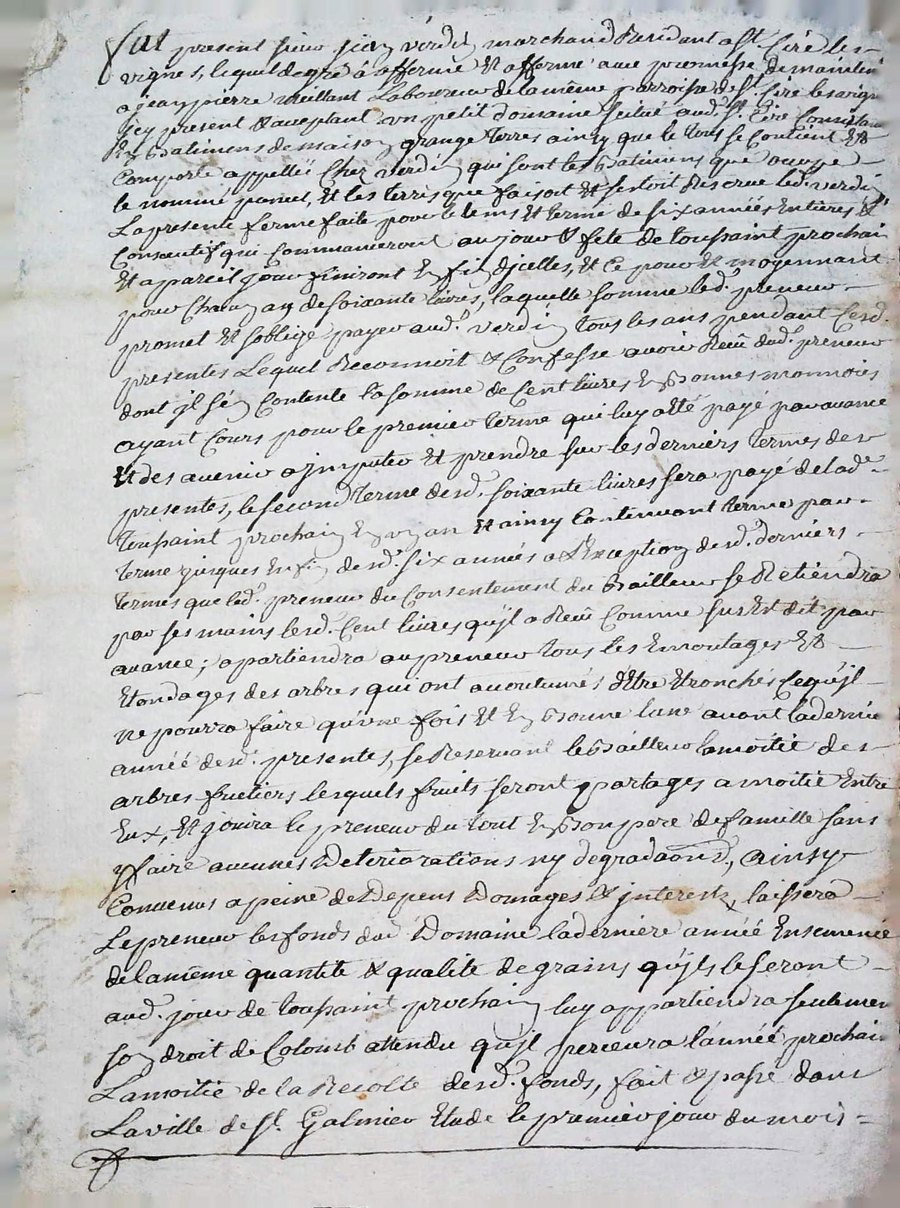 fut present sieur jean verdié marchand Residant a St. Ciré les
vignes, lequel de gré â affermé Et afferme avec promesse de maintenir
a jean pierre meillant Laboureur de la même parroisse de St. Ciré les vignes
jcy present & aceptant un petit domaine situé aud. St. Ciré Consistant
En Batimens de maison grange terres ainsy que le tout se Contient Et
Comporte appellé Chez verdié qui sont les Batimens que occupe
le nommé et les terres que faisoit Et festoit Reserve led. verdié
La presente ferme faite pour le tems Et terme de six années Entieres &
Consecutif qui Commanceront au jour & fete de toussaint prochain
Et a pareil jour finiront En fin d'jcelles, Et Ce pour & moyennant
pour Chacun an de soixante livres, laquelle somme led. preneur
promet Et soblige payer aud. verdié tous les ans pendant Cesd.
presentes Lequel Reconnoit & Confesse avoir Reçu dud. preneur
dont jl s'én Contente la somme de Cent livres En Bonnes monnoies
ayant Cours pour le premier terme qui luy a été payé par avance
Et des avenir a jmputer Et prendre sur les derniers termes des
presentes, le second terme desd. soixante livres sera payé de lad.
toussaint prochain En un an Et ainsy Continuant terme par
terme jusques En fin desd. six années a L'Exception desd. derniers
termes que led. preneur du Consentement du Bailleur se Retiendra
par ses mains lesd. Cent livres qu'jl a Reçu Comme sus Est dit par
avance; apartiendra au preneur tous les Emontages Et
Etondages des arbres qui ont acoutumés d'Etre Etronchés Ce qu'jl
ne pourra faire qu'une fois Et En Bonne lune avant la derniere
année desd. presentes, se Reservant le Bailleur la moitié des
arbres fruetiers lesquels fruits seront partages a moitié Entre
Eux, Et jouira le preneur du tout En Bon pere de famille sans
y faire aucunes Deteriorations ny degradaons, ainsy
Convenus a peine de Depens Domages & jnterests, laissera
Le preneur les fonds dud. Domaine la derniere année Ensemencé
de la même quantité & qualité de grains qu'jls le seront
aud. jour de toussaint prochain luy appartiendra seulement
son droit de Colomb attendu qu'jl percevra l'année prochaine
La moitié de la Recolte desd. fonds, fait & passé dans
La ville de St. Galmier Etude le premier jour du mois